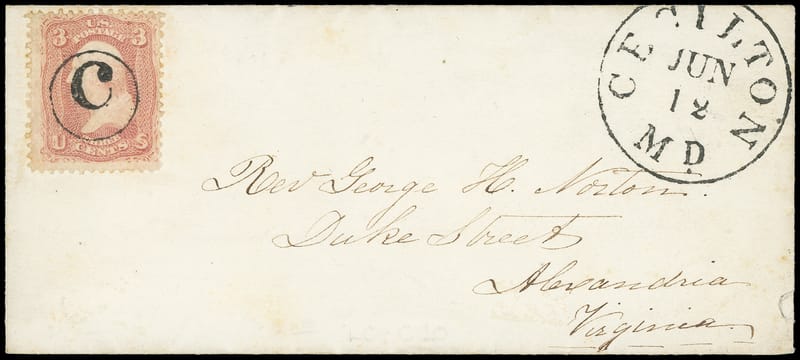 3 U.S. 3
POSTAGE
C
U CENTS S
CECILTON
JUN
12
MD
Rev George H. Norton.
Duke Street
Alexandria
Virginia